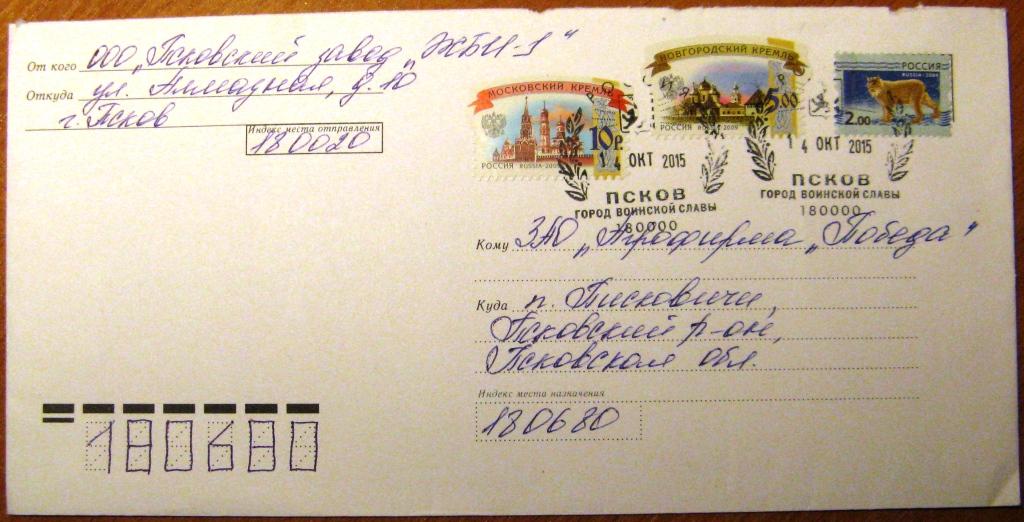 От кого ООО „Псковский завод „ЖБИ-1"
Откуда ул. Алмазная, д. 10
г. Псков
Индекс места отправления
180020
МОСКОВСКИЙ КРЕМЛЬ
10р.
РОССИЯ RUSSIA-2009
НОВГОРОДСКИЙ КРЕМЛЬ
5.00
РОССИЯ RUSSIA-2009
РОССИЯ
RUSSIA-2008
2.00
4 ОКТ 2015
ПСКОВ
ГОРОД ВОИНСКОЙ СЛАВЫ
180000
14 ОКТ 2015
ПСКОВ
ГОРОД ВОИНСКОЙ СЛАВЫ
180000
Кому ЗАО „Агрофирма „Победа"
Куда п. Писковичи,
Псковский р-он,
Псковская обл.
Индекс места назначения
180680
180680